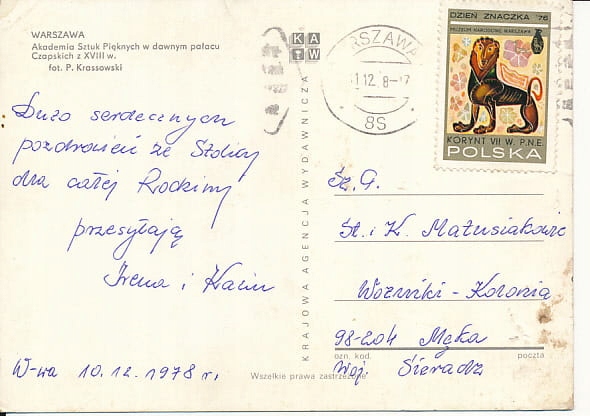 WARSZAWA
Akademia Sztuk Pięknych w dawnym pałacu
Czapskich z XVIII w.
fot. P. Krassowski
KAW
Dużo serdecznych
pozdrowień ze Stolicy
dla całej Rodziny
przesyłają
Irena i
W-wa 10.12.1978 r.
KRAJOWA AGENCJA WYDAWNICZA
Wszelkie prawa zastrzeżone
RSZAWA
1.12.8-17
8S
DZIEŃ ZNACZKA '76
MUZEUM NARODOWE WARSZAWA
KORYNT VII W. P.N.E.
POLSKA
Sz. G.
St. i K. Matusiakowie
Woźniki - Kolonia
98-204 Męka
ozn. kod. poczta
Woj. Sieradz